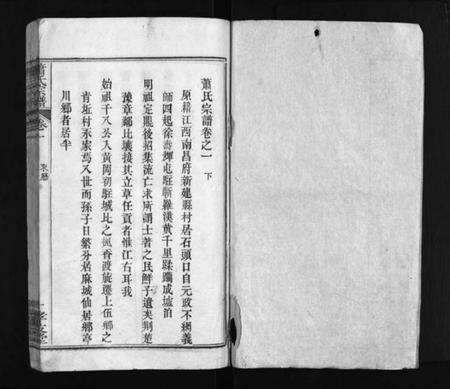 蕭氏宗譜卷之一 下
原籍江西南昌府新建縣村居石頭口自元政不綱義
師四起徐壽輝屯駐蘄羅漢黄千里蹂躪成墟洎
明祖定鼎後招集流亡求所謂士著之民鮮孑遺矣荆楚
豫章鄰比壤接其立草任貢者惟江右耳我
始祖千八公人黄岡初駐城北之
香渡旋遷上伍鄉之
肯坵村永家焉八世而孫子日繁分居麻城仙居鄉亭
川鄉者居半